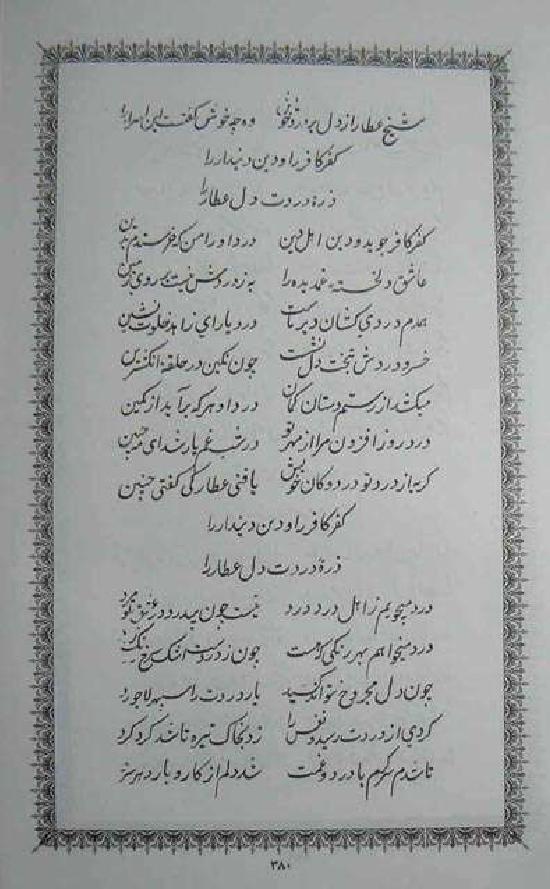 شیخ عطار از دل پر درد خود وه چه خوش گفت این اسرار را
کفر کافر را و دین دیندار را
ذره دردت دل عطار را
کفر کافر جوید و دین اهل دین درد او را من که خرسندم بدین
عاشق دلخسته غمدیده را به ز دردش نیست
همدم دردی کشان درد یار ای زاهد خلوت نشین
خسرو دردش به تخت دل نشست چون نگین در حلقه انگشترین
میکشد از رستم دستان کمان درد او هر که برآید از کمین
درد روز افزون مرا از مهر تو در شب غم یار شد ای مه جبین
گر نه از درد تو درد و کان خویش یافتی عطار کی گفتی چنین
کفر کافر را و دین دیندار را
ذره دردت دل عطار را
درد میجویم ز اهل درد درد نیست چون بیدرد در عشق تو مرد
درد میخواهم بهر رنگی که هست چون ز دردست اشک سرخ
چون دل مجروح تواند کشید بار دردت را سپهر لاجورد
گردی از دردت رسید و نفس را زد بخاک تیره تا شد گرد گرد
تا شدم سرگرم با درد و غمت شد دلم از کار و بار دهر سرد
۳۸۰